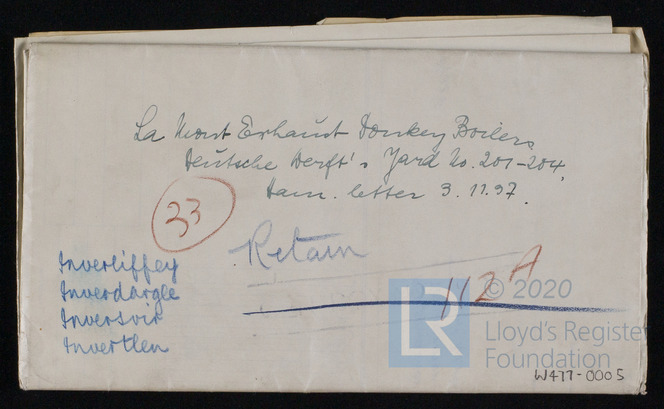 La Mont Exhaust Donkey Boilers
Deutsche Werft's Yard No. 201-204,
Ham. letter 3.11.37.
33
Retain
Inverliffey
Inverdargle
Inversuir
Invertlen
112A
LR
© 2020
Lloyd's Register
Foundation
W477-0005